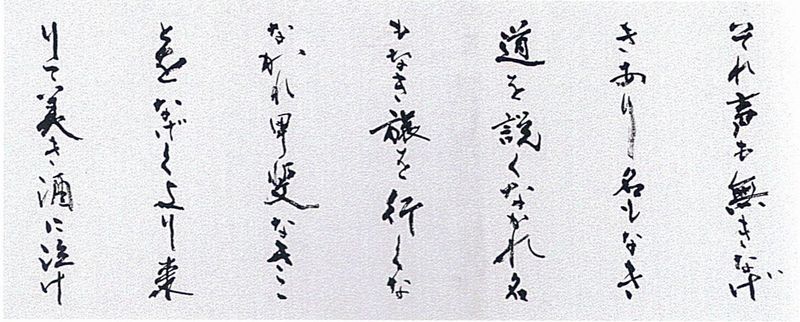 それ声も無きなげ
きあり名もなき
道を説くなかれ名
もなき旅を行くな
ながれ甲斐なきこ
とをなげくより来
りて美き酒に泣け